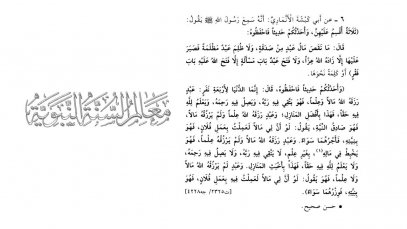 ٦ - عن أبي كَبْشَةَ الْأَنْمَارِيِّ: أَنَّهُ سَمِعَ رَسُولَ اللهِ ﷺ يَقُولُ:
(ثَلَاثَةٌ أُقْسِمُ عَلَيْهِنَّ، وَأُحَدِّثُكُمْ حَدِيثاً فَاحْفَظُوهُ:
قَالَ: مَا نَقَصَ مَالُ عَبْدٍ مِنْ صَدَقَةٍ، وَلَا ظُلِمَ عَبْدٌ مَظْلَمَةً فَصَبَرَ
عَلَيْهَا إِلَّا زَادَهُ اللهُ عِزّاً، وَلَا فَتَحَ عَبْدٌ بَابَ مَسْأَلَةٍ إِلَّا فَتَحَ اللهُ عَلَيْهِ بَابَ
فَقْرٍ) أَوْ كَلِمَةً نَحْوَهَا.
(وَأُحَدِّثُكُمْ حَدِيثاً فَاحْفَظُوهُ، قَالَ: إِنَّمَا الدُّنْيَا لِأَرْبَعَةِ نَفَرٍ: عَبْدٍ
رَزَقَهُ اللهُ مَالاً وَعِلْماً، فَهُوَ يَتَّقِي فِيهِ رَبَّهُ، وَيَصِلُ فِيهِ رَحِمَهُ، وَيَعْلَمُ لِلَّهِ
فِيهِ حَقّاً، فَهَذَا بِأَفْضَلِ الْمَنَازِلِ؛ وَعَبْدٍ رَزَقَهُ اللهُ عِلْماً وَلَمْ يَرْزُقْهُ مَالاً،
فَهُوَ صَادِقُ النِّيَّةِ، يَقُولُ: لَوْ أَنَّ لِي مَالاً لَعَمِلْتُ بِعَمَلِ فُلَانٍ، فَهُوَ
بِنِيَّتِهِ، فَأَجْرُهُمَا سَوَاءٌ. وَعَبْدٍ رَزَقَهُ اللهُ مَالاً وَلَمْ يَرْزُقْهُ عِلْماً، فَهُوَ
يَخْبِطُ فِي مَالِهِ(١) بِغَيْرِ عِلْمٍ، لَا يَتَّقِي فِيهِ رَبَّهُ، وَلَا يَصِلُ فِيهِ رَحِمَهُ،
وَلَا يَعْلَمُ لِلَّهِ فِيهِ حَقّاً، فَهَذَا بِأَخْبَثِ الْمَنَازِلِ. وَعَبْدٍ لَمْ يَرْزُقْهُ اللهُ مَالاً
وَلَا عِلْماً، فَهُوَ يَقُولُ: لَوْ أَنَّ لِي مَالاً لَعَمِلْتُ فِيهِ بِعَمَلِ فُلَانٍ، فَهُوَ
بِنِيَّتِهِ، فَوِزْرُهُمَا سَوَاءٌ). [ت٢٣٢٥/ جه٤٢٢٨]
• حسن صحيح.
مَعَالِمُ السُّنَّةِ النَّبَوِيَّةِ